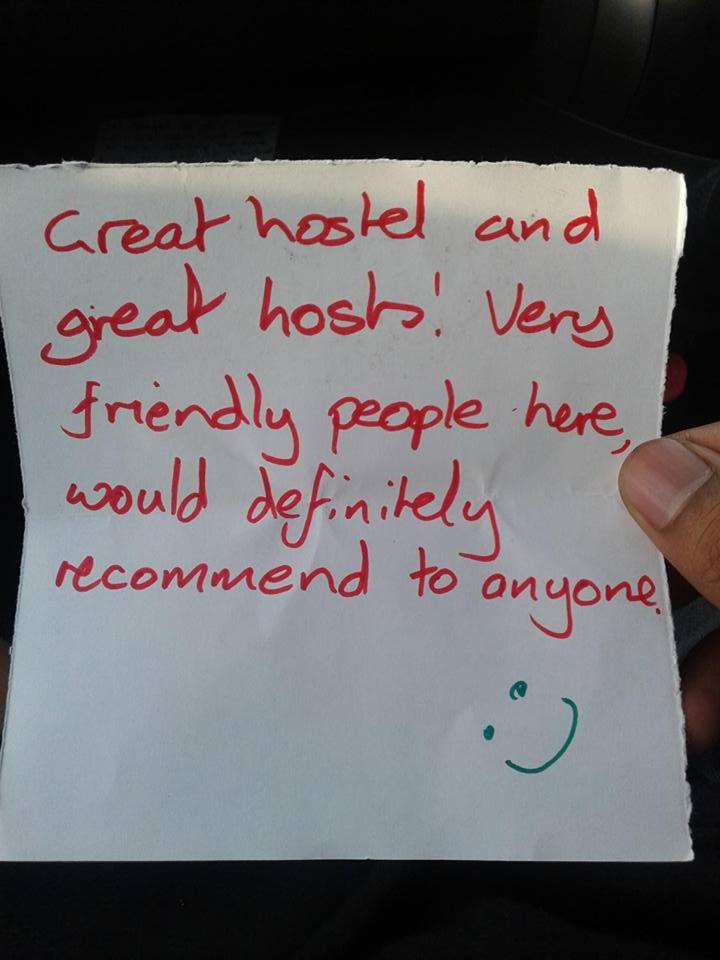 Great hostel and
great hosts! Very
friendly people here,
would definitely
recommend to anyone.
:)